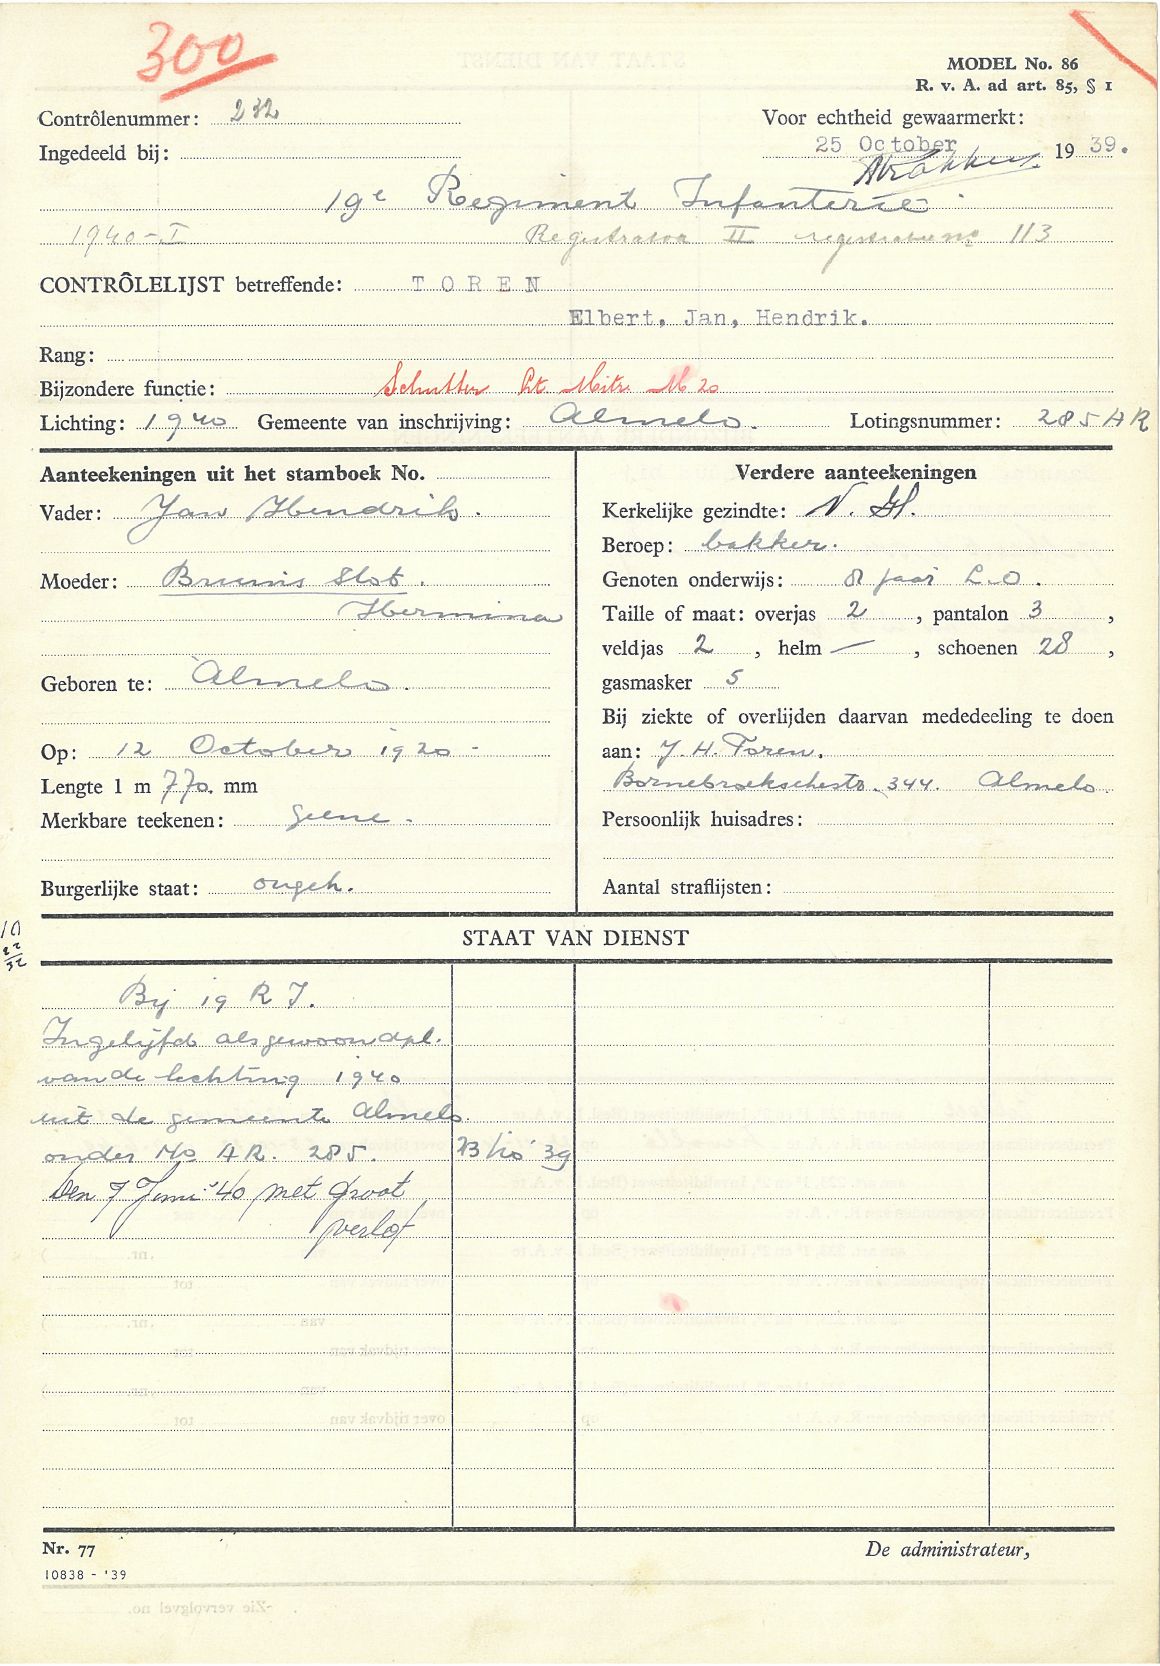 300
MODEL No. 86
R. v. A. ad art. 85, § 1
Contrôlenummer: 232
Voor echtheid gewaarmerkt:
Ingedeeld bij:
25 October 1939.
19e Regiment Infanterie
1940-I Registratoa II registratieno 113
CONTRÔLELIJST betreffende: TOREN
Elbert, Jan, Hendrik.
Rang:
Bijzondere functie: Schutter Lt. Mitr. M 20
Lichting: 1940 Gemeente van inschrijving: Almelo. Lotingsnummer: 285 AR
Aanteekeningen uit het stamboek No.
Vader: Jan Hendrik.
Moeder: Bruins Slot.
Hermina
Geboren te: Almelo.
Op: 12 October 1920 -
Lengte 1 m 770. mm
Merkbare teekenen: geene.
Burgerlijke staat: ongeh.
Verdere aanteekeningen
Kerkelijke gezindte: N. H.
Beroep: bakker.
Genoten onderwijs: 8 jaar L.O.
Taille of maat: overjas 2, pantalon 3,
veldjas 2, helm —, schoenen 28,
gasmasker 5
Bij ziekte of overlijden daarvan mededeeling te doen
aan: J. H. Toren.
Bornebroekschestr. 344. Almelo.
Persoonlijk huisadres:
Aantal straflijsten:
10
22
32
STAAT VAN DIENST
Bij 19 R I.
Ingelijfd als gewoon dpl.
van de lichting 1940
uit de gemeente Almelo.
onder No AR. 285. 23/10 '39
Den 7 Juni '40 met groot
verlof
Nr. 77
De administrateur,
10838 - '39